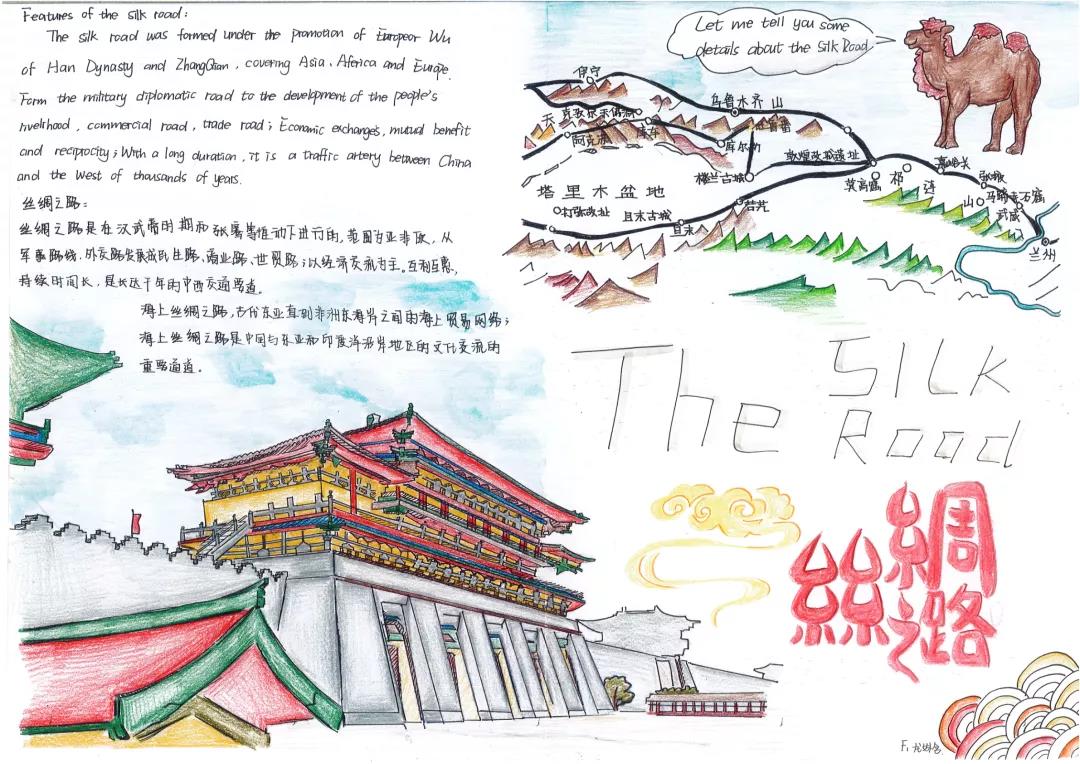 Features of the silk road:
The silk road was formed under the promotion of Europeor Wu
of Han Dynasty and ZhangQian, covering Asia, Aferica and Europe.
Form the military diplomatic road to the development of the people's
livelihood, commercial road, trade road; Economic exchanges, mutual benefit
and reciprocity; With a long duration, it is a traffic artery between China
and the West of thousands of years.
丝绸之路:
丝绸之路是在汉武帝时期和张骞等推动下进行的,范围为亚非欧,从
军事路线,外交路发展成民生路、商业路、世贸路;以经济交流为主。互利互惠,
持续时间长,是长达千年的中西交通要道。
海上丝绸之路,古代东亚直到非洲东海岸之间的海上贸易网络;
海上丝绸之路是中国与东亚和印度洋沿岸地区的文化交流的
重要通道。
Let me tell you some
details about the Silk Road
伊宁
乌鲁木齐
山
天
库车
阿克苏
库尔勒
吐鲁番
敦煌故城遗址
楼兰古城
嘉峪关
莫高窟
祁
连
山
张掖
马蹄寺石窟
武威
兰州
塔里木盆地
若羌
且末古城
且末
The SILK
Road
絲綢之路